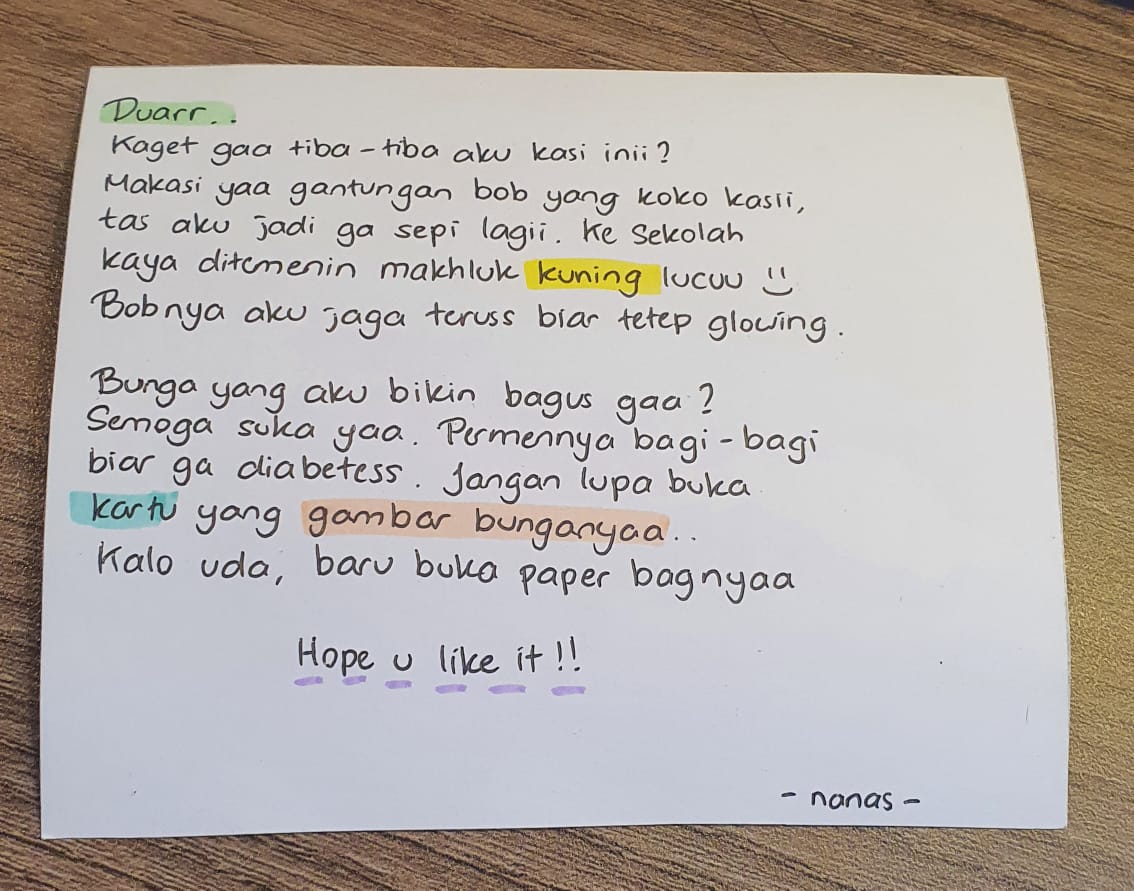 Duarr..
Kaget gaa tiba-tiba aku kasi inii?
Makasi yaa gantungan bob yang koko kasii,
tas aku jadi ga sepi lagii. Ke sekolah
kaya ditemenin makhluk kuning lucuu :)
Bobnya aku jaga teruss biar tetep glowing.
Bunga yang aku bikin bagus gaa?
Semoga suka yaa. Permennya bagi-bagi
biar ga diabetess. Jangan lupa buka
kartu yang gambar bunganyaa..
Kalo uda, baru buka paper bagnyaa
Hope u like it!!
- nanas -